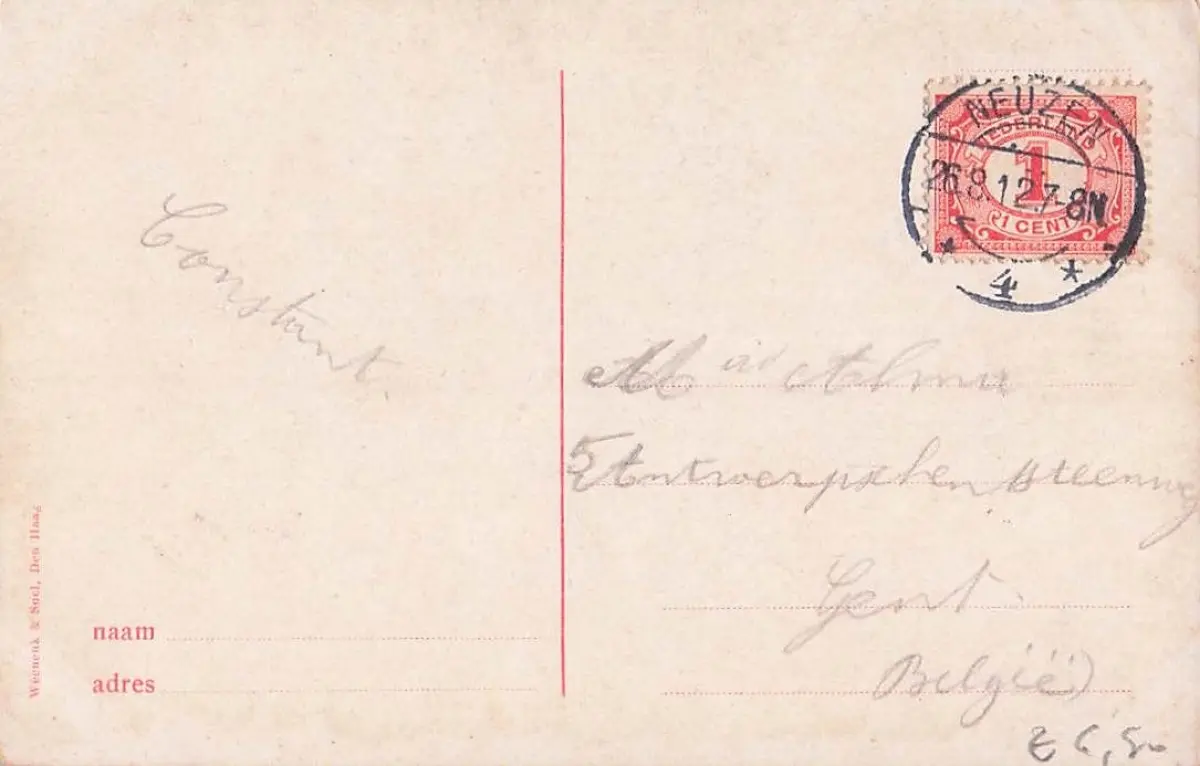 NEUZEN
NEDERLAND
26.8.12.7-8N
1
1 CENT
4
Constant.
Alma
5 Antwerpschen steenweg
Gent.
België)
naam
adres
Weenenk & Snel, Den Haag